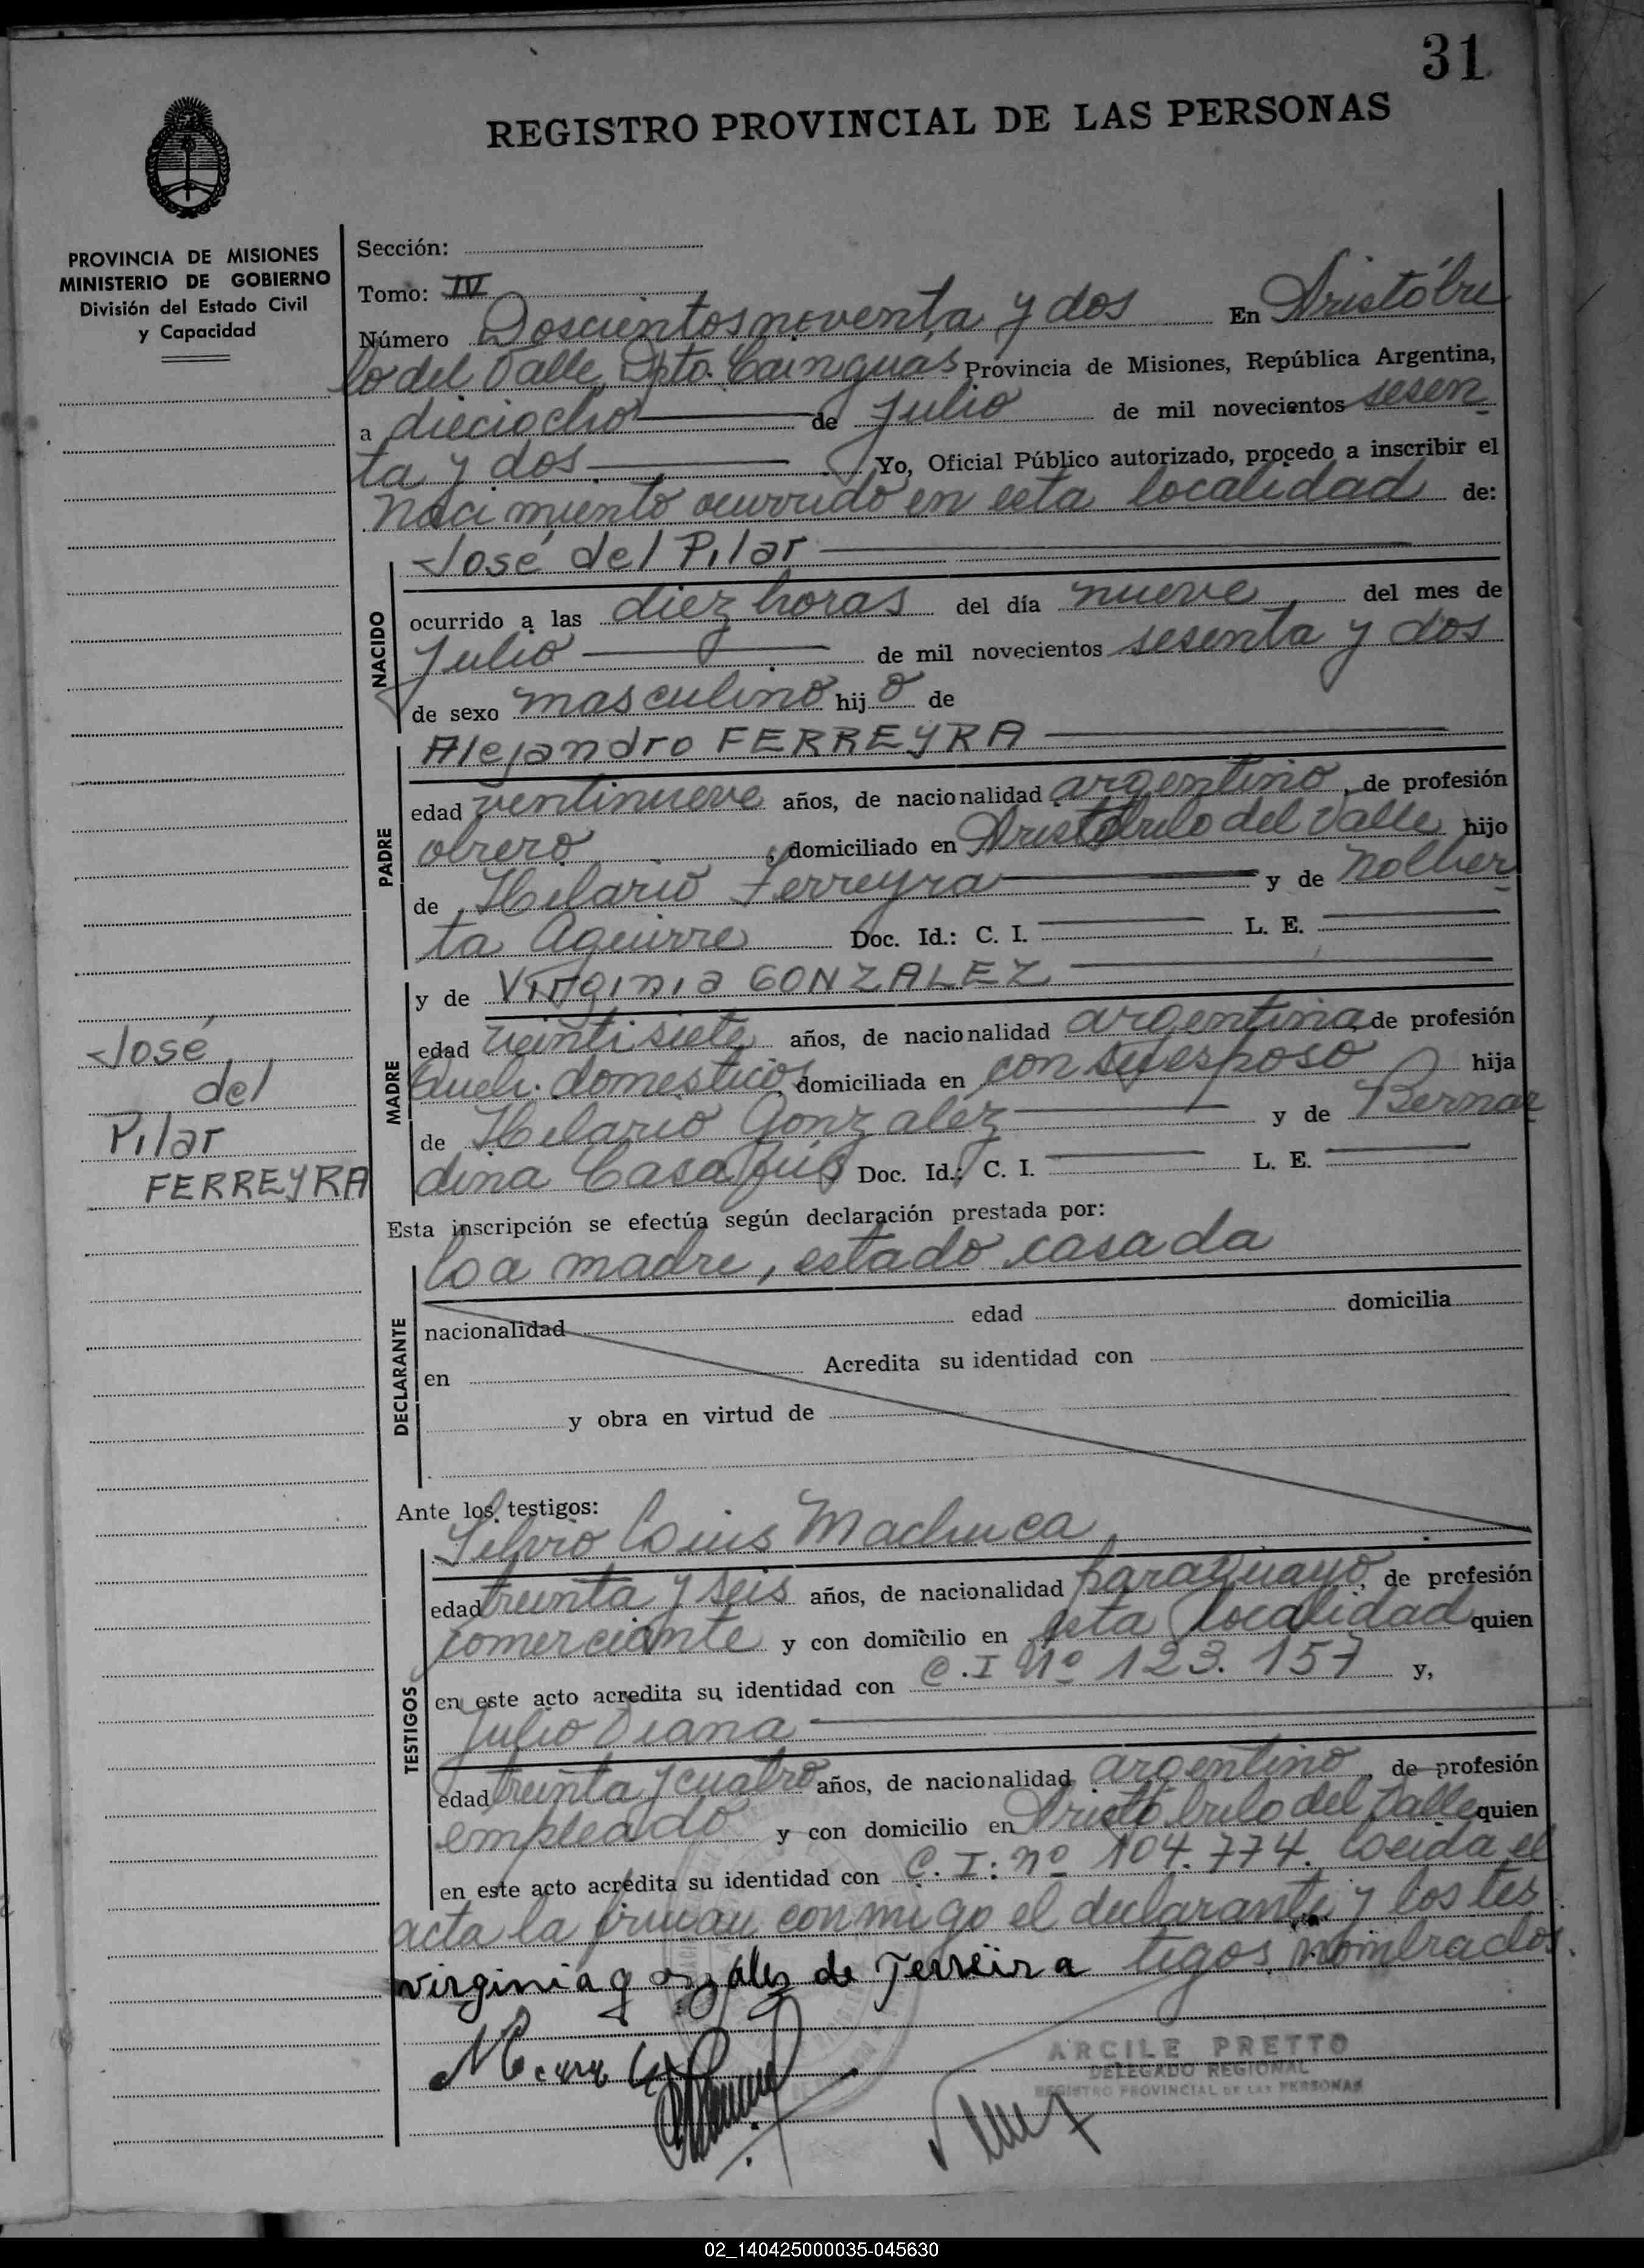 31
REGISTRO PROVINCIAL DE LAS PERSONAS
PROVINCIA DE MISIONES
MINISTERIO DE GOBIERNO
División del Estado Civil
y Capacidad
Sección:
Tomo: IV
Número Doscientos noventa y dos En Aristóbu
lo del Valle, Dpto. Cainguas Provincia de Misiones, República Argentina,
a dieciocho de Julio de mil novecientos sesen
ta y dos Yo, Oficial Público autorizado, procedo a inscribir el
nacimiento ocurrido en esta localidad de:
José del Pilar
NACIDO
ocurrido a las diez horas del día nueve del mes de
Julio de mil novecientos sesenta y dos
de sexo masculino hij o de
Alejandro FERREYRA
PADRE
edad ventinueve años, de nacionalidad argentino, de profesión
obrero, domiciliado en Aristóbulo del Valle hijo
de Hilario Ferreyra y de Nolber
ta Aguirre Doc. Id.: C. I. L. E.
y de Virginia GONZALEZ
MADRE
edad veintisiete años, de nacionalidad argentina, de profesión
Queh. domesticos domiciliada en con su esposo hija
de Hilario Gonzalez y de Bernar
dina Casafús Doc. Id.: C. I. L. E.
José
del
Pilar
FERREYRA
Esta inscripción se efectúa según declaración prestada por:
La madre, estado casada
DECLARANTE
nacionalidad edad domicilia
en Acredita su identidad con
y obra en virtud de
Ante los testigos:
Silvio Luis Machuca
TESTIGOS
edad treinta y seis años, de nacionalidad paraguayo, de profesión
comerciante y con domicilio en esta localidad quien
en este acto acredita su identidad con C.I Nº 123.157 y,
Julio Diana
edad treinta y cuatro años, de nacionalidad argentino, de profesión
empleado y con domicilio en Aristóbulo del Valle quien
en este acto acredita su identidad con C. I: nº 104.774. Leida el
acta la firman conmigo el declarante y los tes
tigos nombrados.
virginia gozalez de Ferreira
ARCILE PRETTO
DELEGADO REGIONAL
REGISTRO PROVINCIAL DE LAS PERSONAS
02_140425000035-045630